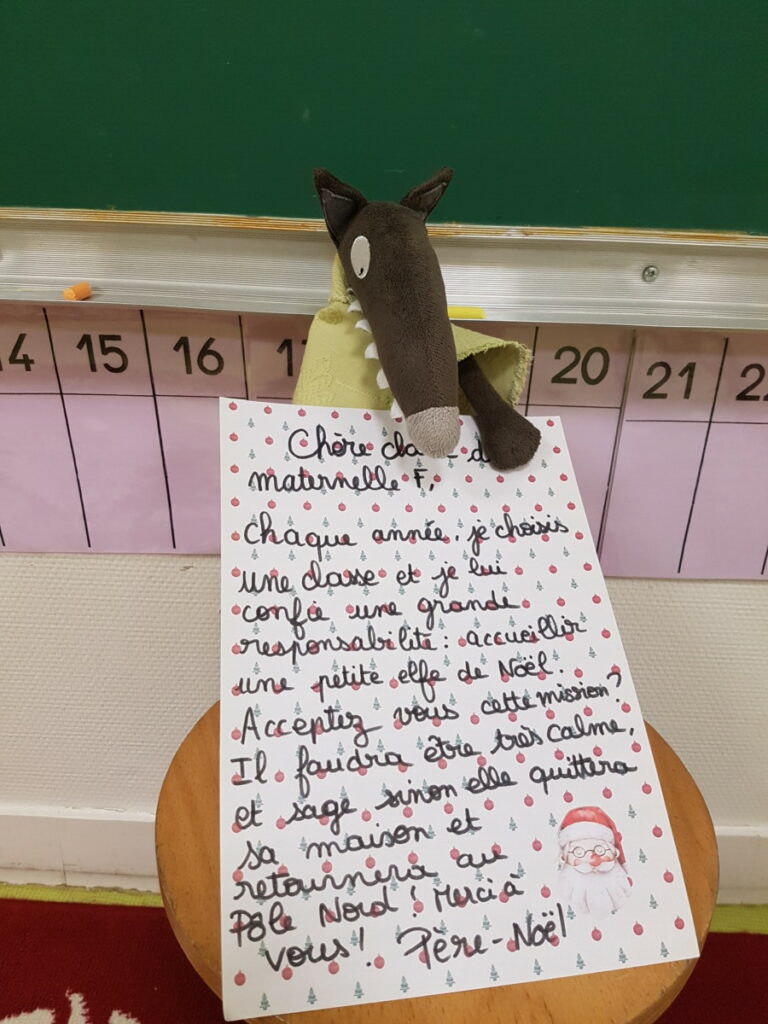 14 15 16 17 20 21 22
Chère
maternelle F,
Chaque année, je choisis
une classe et je lui
confie une grande
responsabilité : accueillir
une petite elfe de Noël.
Acceptez vous cette mission ?
Il faudra être très calme,
et sage sinon elle quittera
sa maison et
retournera au
Pôle Nord ! Merci à
vous ! Père-Noël